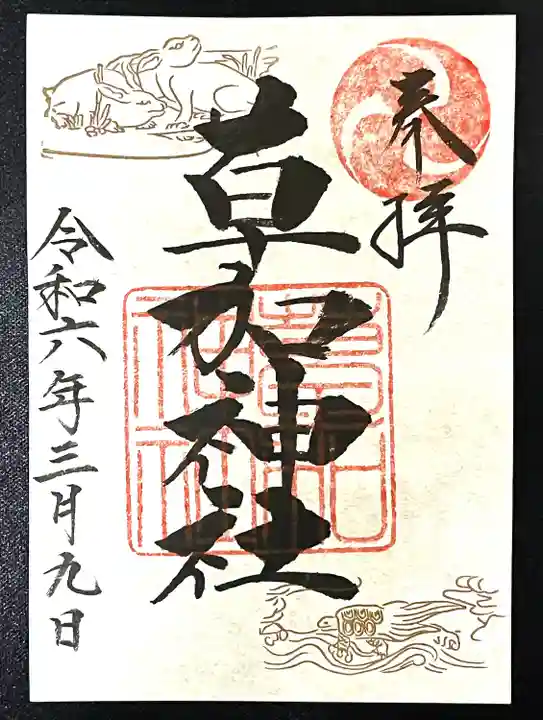 奉拝
草加神社
令和六年三月九日